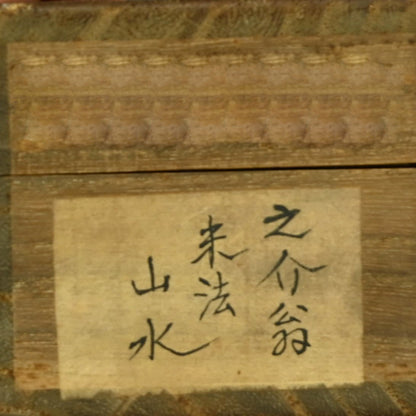 之介翁
米法
山水